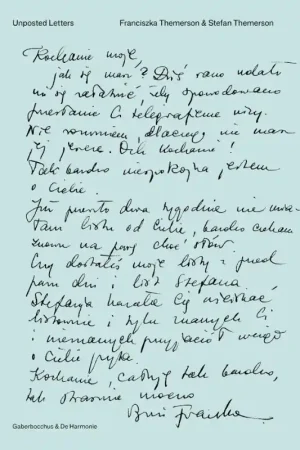 Unposted Letters
Franciszka Themerson & Stefan Themerson
Kochanie moje,
jak się masz? Dziś rano udało
mi się załatwić żeby spowodowano
przesłanie Ci telegraficzne wizy.
Nie rozumiem, dlaczego nie masz
jej jeszcze. Och kochanie!
Tak bardzo niespokojna jestem
o Ciebie.
Już przeszło dwa tygodnie nie
listu od Ciebie, bardzo czekam
znowu na parę choć słów.
Czy dostałeś moje listy z przed
paru dni i list Stefana.
Stefania kazała Cię uściskać
listownie i tylu znanych Ci
i nieznanych przyjaciół wciąż
o Ciebie pyta.
Kochanie, całuję tak bardzo,
tak strasznie mocno
Franka
Gaberbocchus & De Harmonie